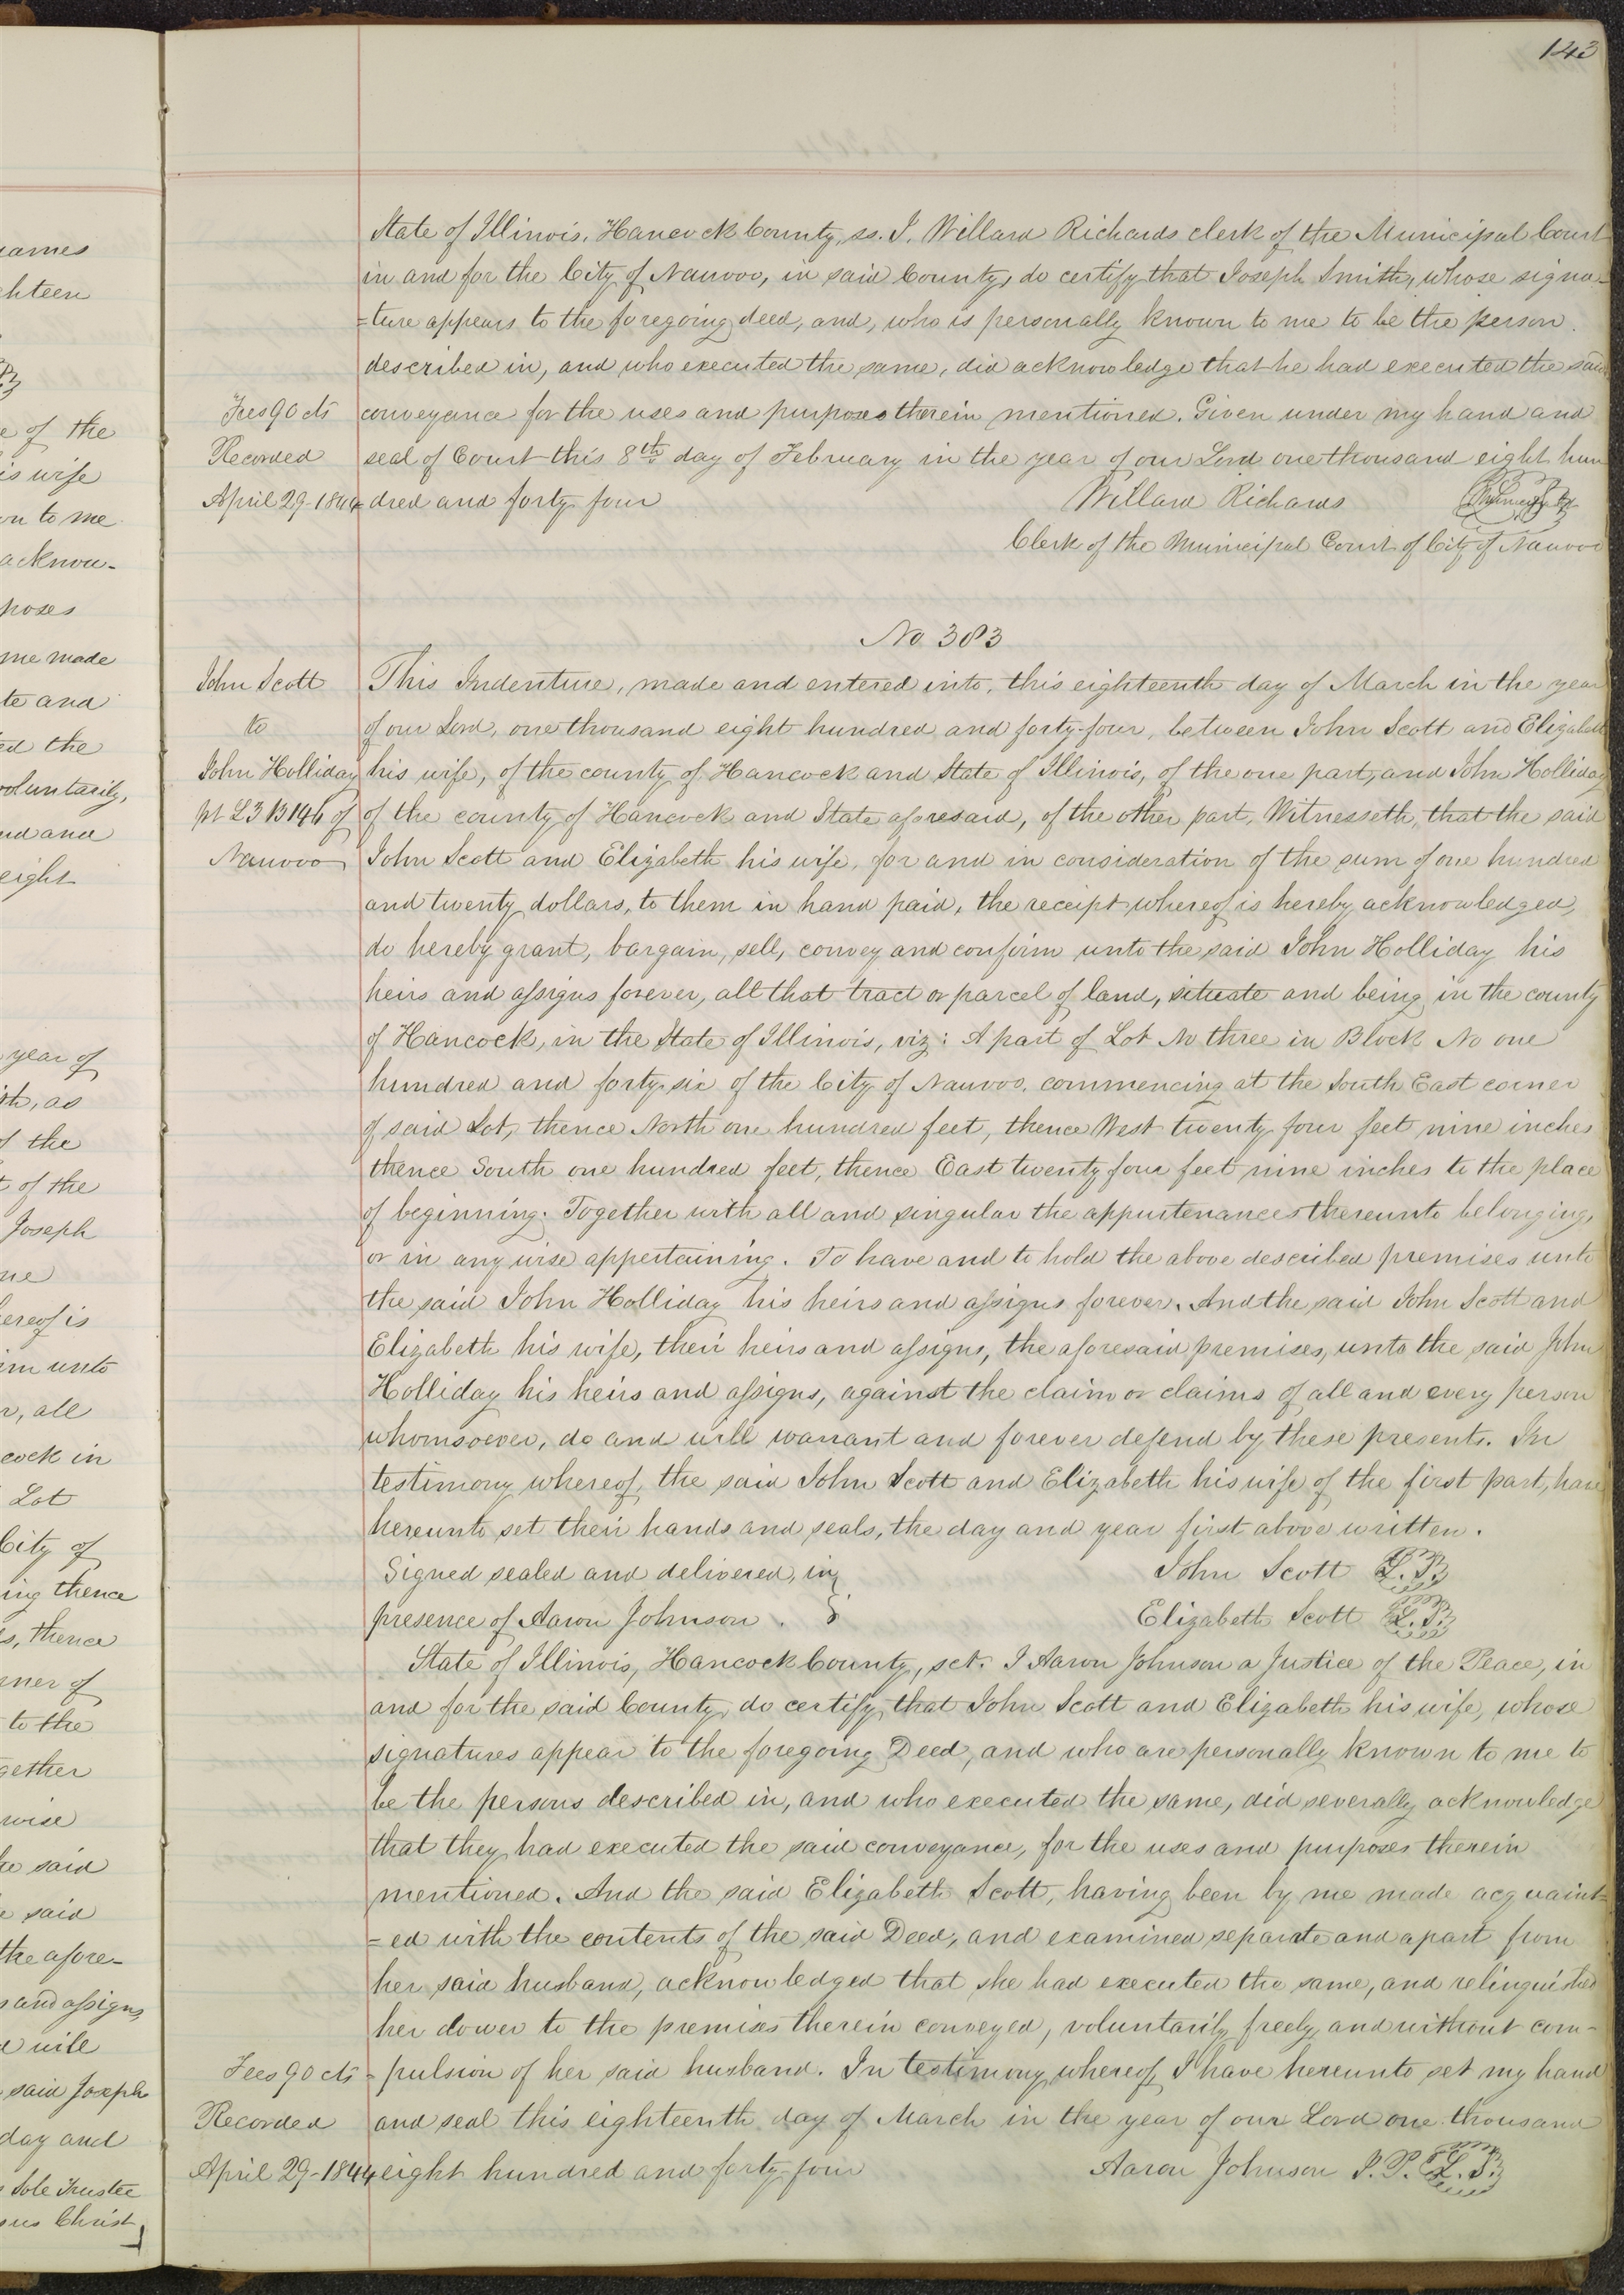 143
State of Illinois, Hancock County, ss. I, Willard Richards clerk of the Municipal Court
in and for the City of Nauvoo, in said County, do certify that Joseph Smith, whose signa-
=ture appears to the foregoing deed, and, who is personally known to me to be the person
described in, and who executed the same, did acknowledge that he had executed the said
Fees 90 cts conveyance for the uses and purposes therein mentioned. Given under my hand and
Recorded seal of Court this 8th day of February in the year of our Lord one thousand eight hun
April 29-1844 dred and forty four Willard Richards
Clerk of the Municipal Court of City of Nauvoo
No 383
John Scott This Indenture, made and entered into, this eighteenth day of March in the year
to of our Lord, one thousand eight hundred and forty-four, between John Scott and Elizabeth
John Holliday his wife, of the county of Hancock and State of Illinois, of the one part, and John Holliday
pt L 3 B 146 of of the county of Hancock and State aforesaid, of the other part, Witnesseth, that the said
Nauvoo John Scott and Elizabeth his wife, for and in consideration of the sum of one hundred
and twenty dollars, to them in hand paid, the receipt whereof is hereby acknowledged,
do hereby grant, bargain, sell, convey and confirm unto the said John Holliday his
heirs and assigns forever, all that tract or parcel of land, situate and being in the county
of Hancock, in the State of Illinois, viz: A part of Lot No three in Block No one
hundred and forty-six of the City of Nauvoo. commencing at the South East corner
of said Lot, thence North one hundred feet, thence West twenty four feet nine inches
thence South one hundred feet, thence East twenty four feet nine inches to the place
of beginning. Together with all and singular the appurtenances thereunto belonging,
or in any wise appertaining. To have and to hold the above described premises unto
the said John Holliday his heirs and assigns forever. And the said John Scott and
Elizabeth his wife, their heirs and assigns, the aforesaid premises, unto the said John
Holliday his heirs and assigns, against the claim or claims of all and every person
whomsoever, do and will warrant and forever defend by these presents. In
testimony whereof, the said John Scott and Elizabeth his wife of the first part, have
hereunto set their hands and seals, the day and year first above written.
Signed sealed and delivered, in John Scott L.S.
presence of Aaron Johnson. Elizabeth Scott L.S.
State of Illinois, Hancock County, sct. I Aaron Johnson a Justice of the Peace, in
and for the said County, do certify, that John Scott and Elizabeth his wife, whose
signatures appear to the foregoing Deed, and who are personally known to me to
be the persons described in, and who executed the same, did severally acknowledge
that they had executed the said conveyance, for the uses and purposes therein
mentioned. And the said Elizabeth Scott, having been by me made acquaint-
=ed with the contents of the said Deed, and examined separate and apart from
her said husband, acknowledged that she had executed the same, and relinquished
her dower to the premises therein conveyed, voluntarily, freely and without com-
Fees 90 cts =pulsion of her said husband. In testimony whereof, I have hereunto set my hand
Recorded and seal this eighteenth day of March in the year of our Lord one thousand
April 29-1844 eight hundred and forty-four Aaron Johnson J. P. L.S.